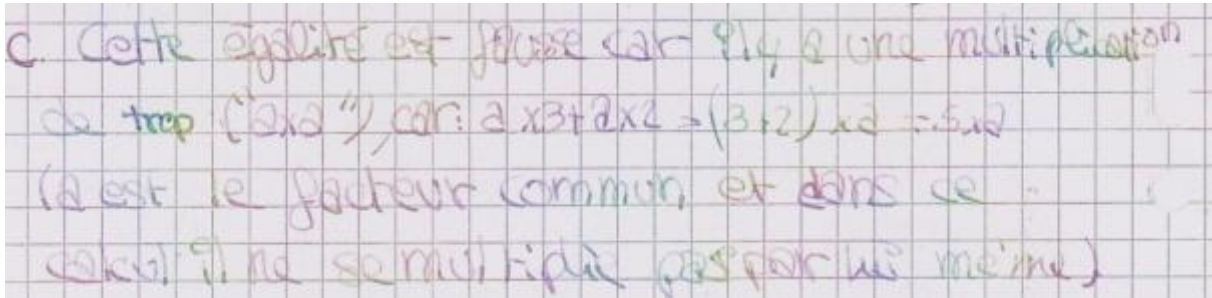 C. Cette égalité est fausse car il y a une multiplication
de trop ("axa"), car: a x3+ax2 = (3+2) xa = 5xa
(a est le facteur commun, et dans ce
calcul il ne se multiplie pas par lui même)